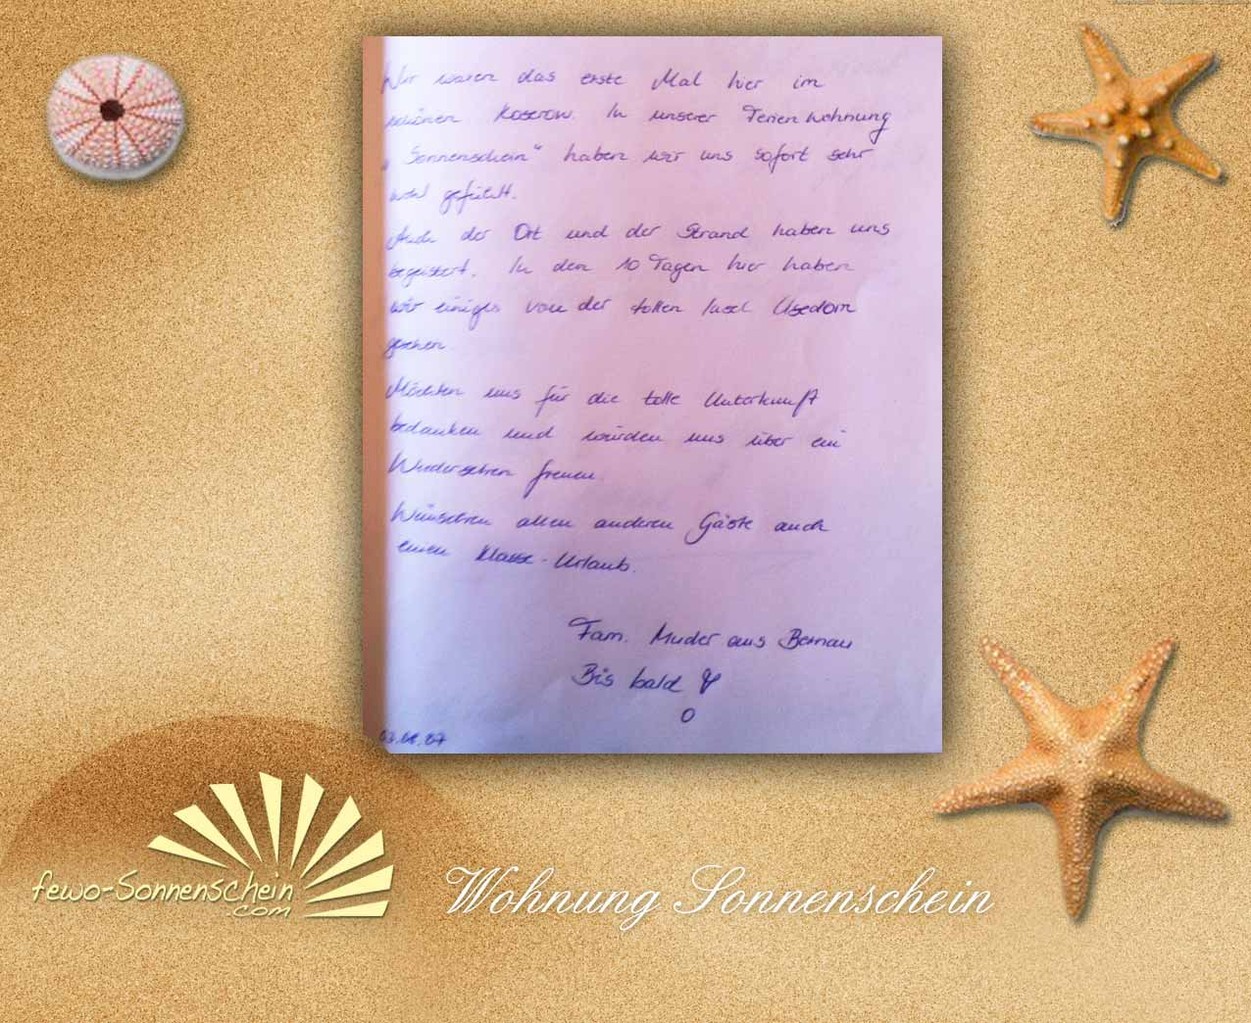 Wir waren das erste Mal hier im
schönen Koserow. In unserer Ferienwohnung
„Sonnenschein“ haben wir uns sofort sehr
wohl gefühlt.
Auch der Ort und der Strand haben uns
begeistert. In den 10 Tagen hier haben
wir einiges von der tollen Insel Usedom
gesehen.
Möchten uns für die tolle Unterkunft
bedanken und würden uns über ein
Wiedersehen freuen.
Wünschen allen anderen Gäste auch
einen Klasse-Urlaub.
Fam. Muder aus Bernau
Bis bald
03.08.07
fewo-Sonnenschein
.com
Wohnung Sonnenschein